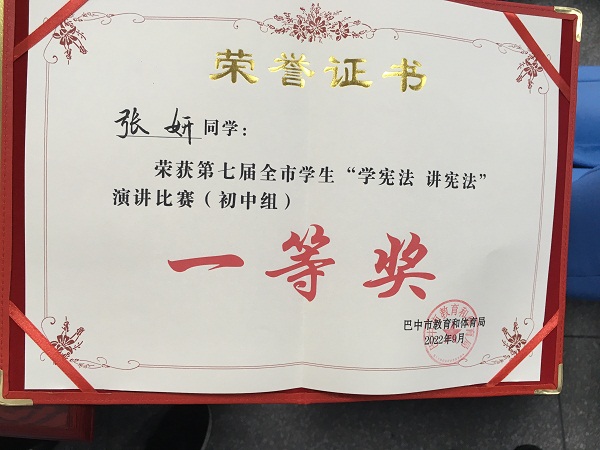 荣誉证书
张妍同学：
荣获第七届全市学生“学宪法 讲宪法”
演讲比赛（初中组）
一等奖
巴中市教育和体育局
2022年9月